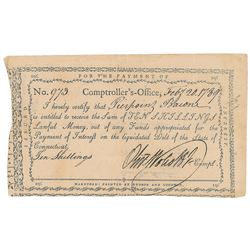 FOR THE PAYMENT OF
No. 973 Comptroller's-Office, Feby 20 1789
I hereby certify that Pierpoint Bacon
is entitled to receive the Sum of TEN SHILLINGS
Lawful Money, out of any Funds appropriated for the
Payment of Interest on the liquidated Debt of the State of
Connecticut.
Ten Shillings
Compt.
HARTFORD: PRINTED BY HUDSON AND GOODWIN.